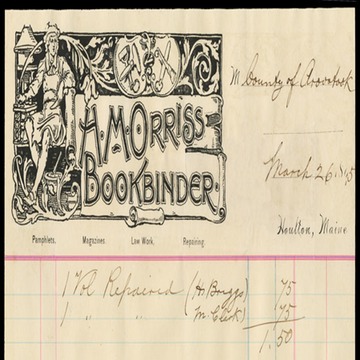 M County of Aroostook
H. M. ORRISS
BOOKBINDER.
March 26,
Houlton, Maine
Pamphlets. Magazines Law Work, Repairing.
1 Vol Repaired (H. Briggs) 75
1 " " M. Clark) 75
1.50